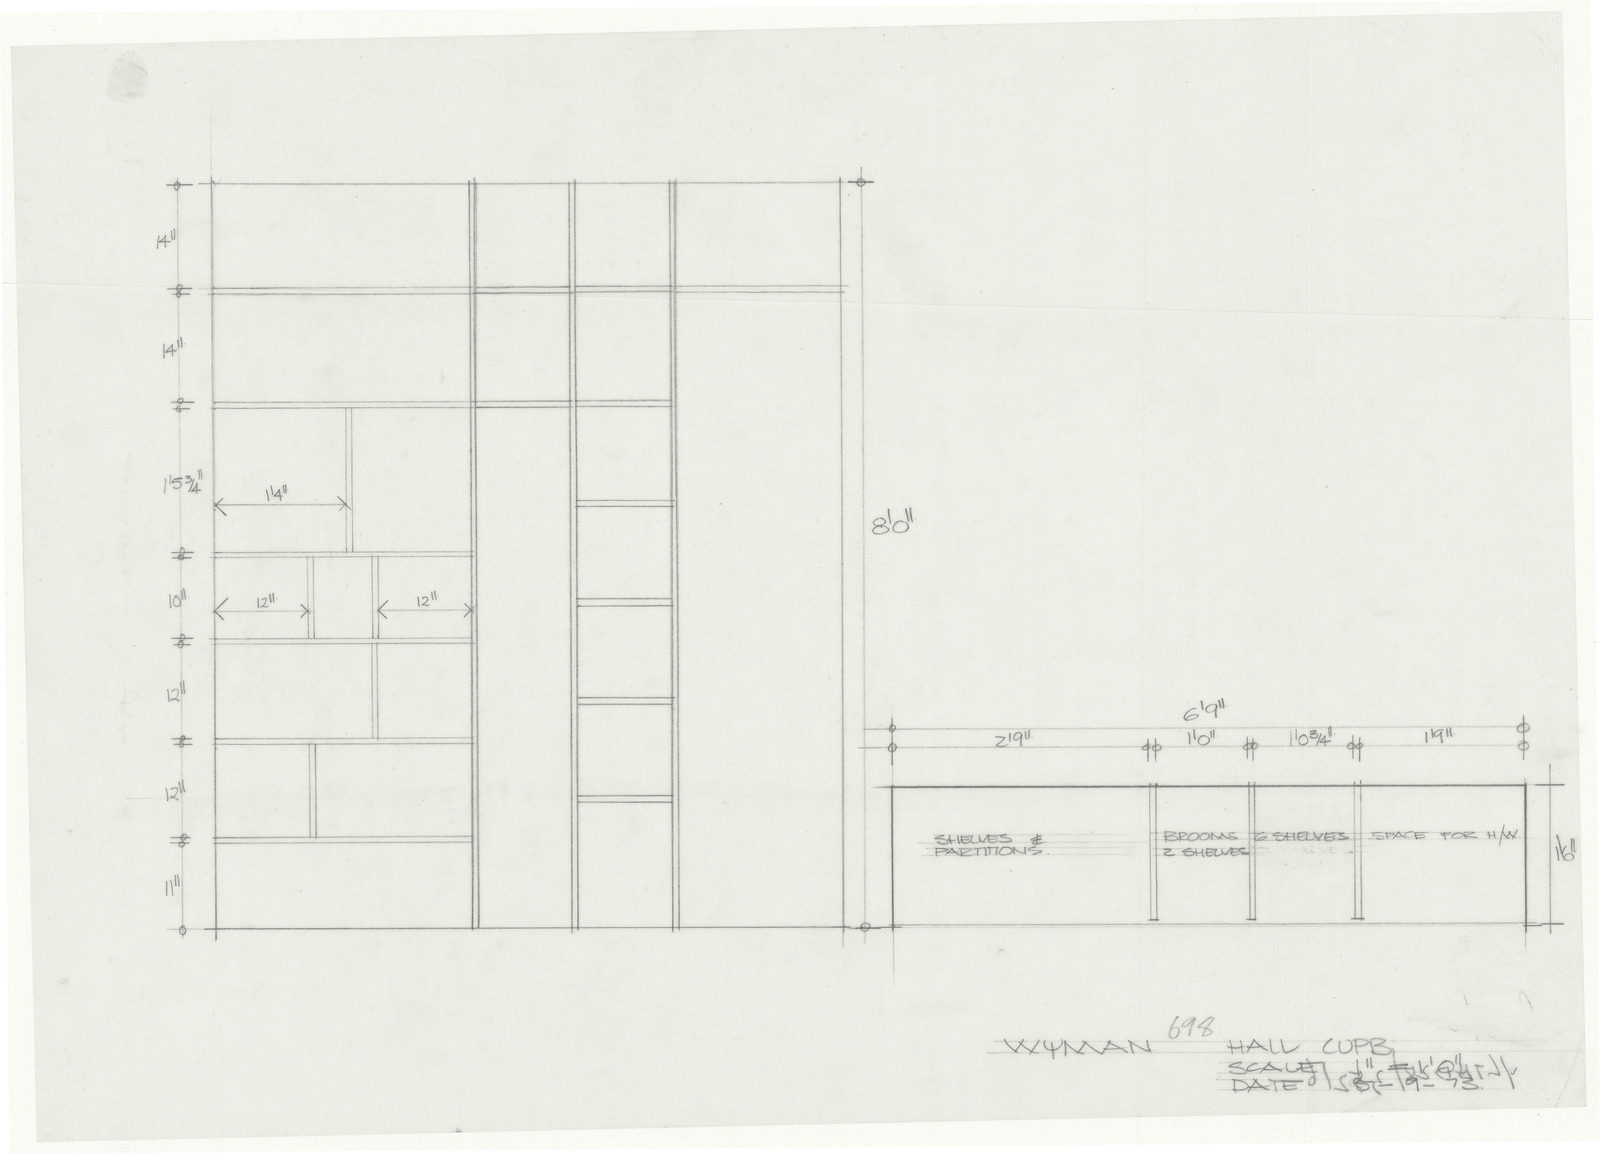 14"
14"
1'5¾"
1'4"
10"
12"
12"
12"
12"
11"
8'0"
6'9"
2'9" 1'0" 1'0¾" 1'9"
SHELVES &
PARTITIONS.
BROOMS
2 SHELVES
6 SHELVES
SPACE FOR H/W
1'6"
698
WYMAN
HALL CUPB.
SCALE 1" =
DATE 9-73.